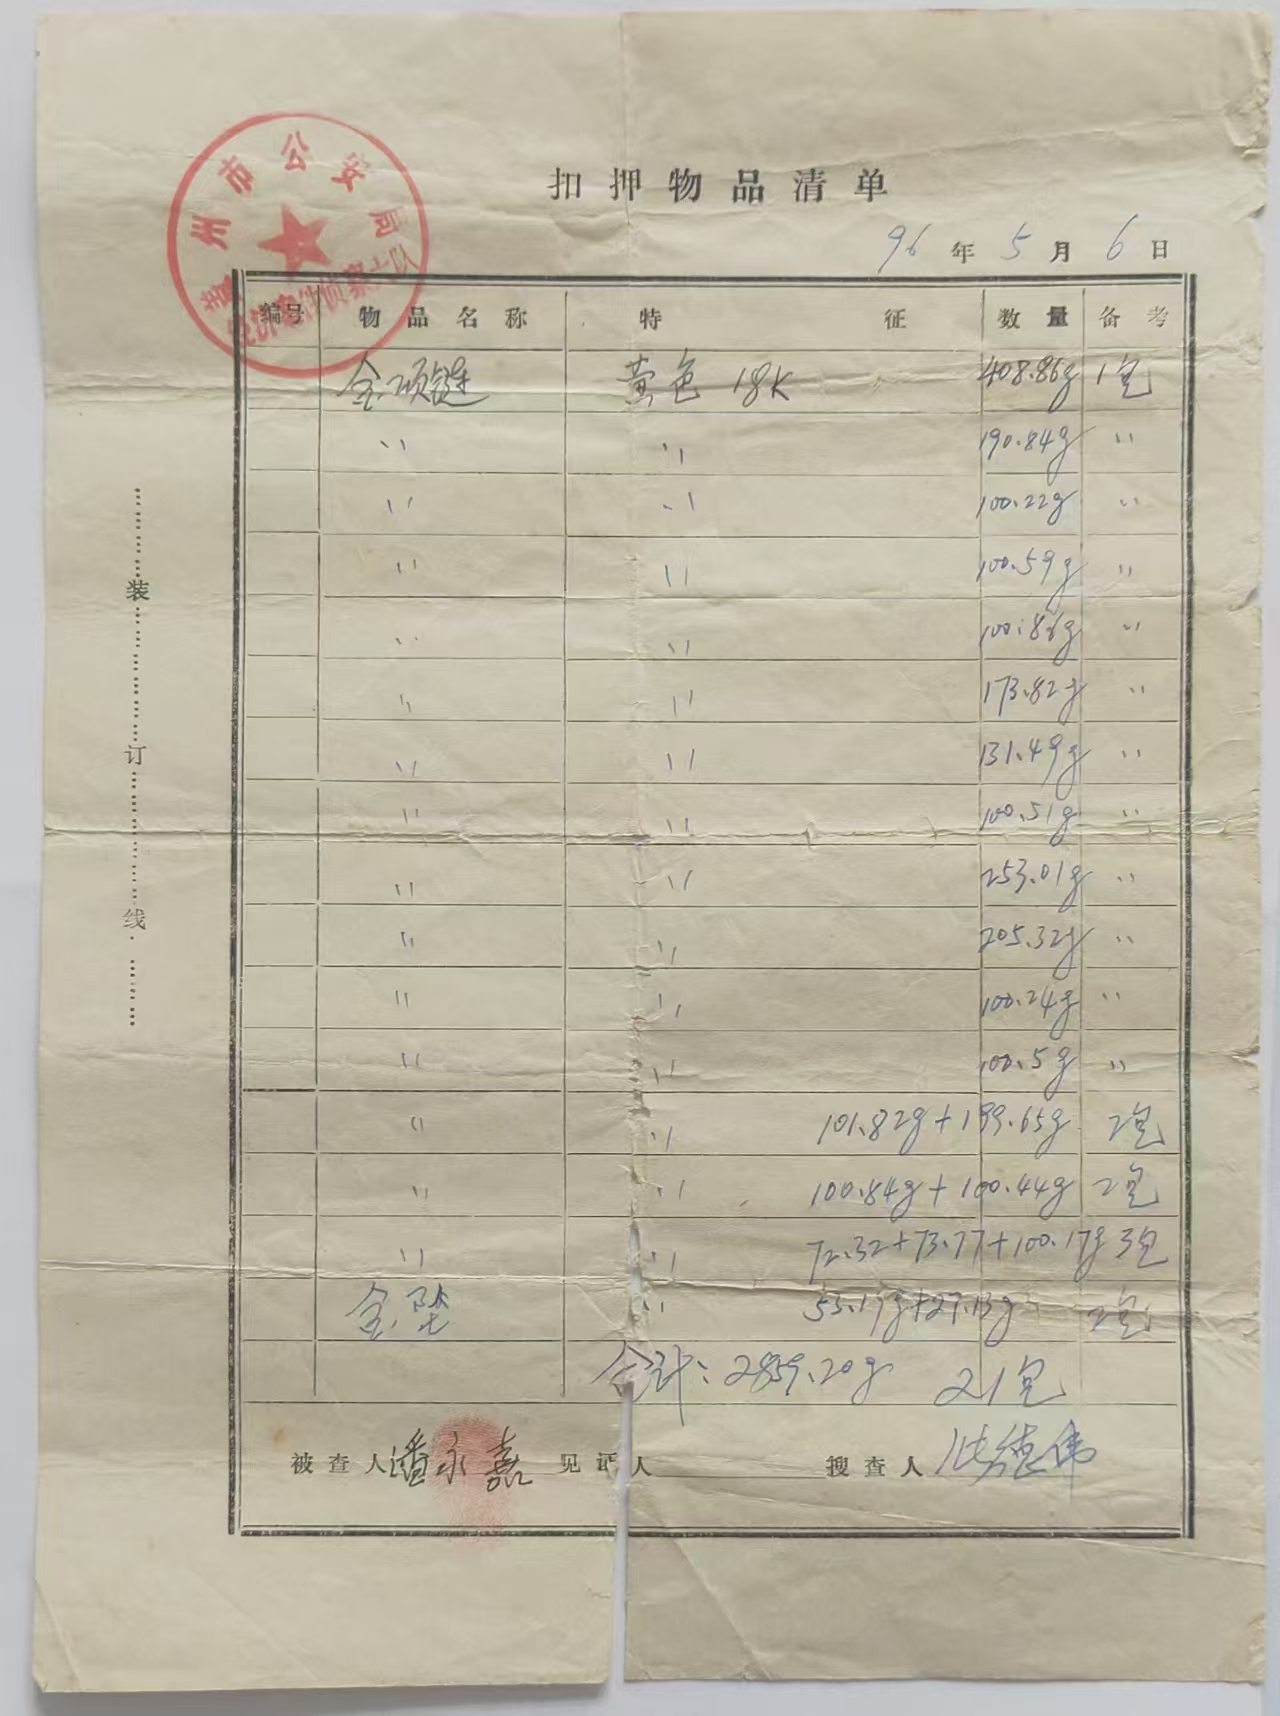 扣押物品清单
96年5月6日
州市公安局
编号 物品名称 特征 数量 备考
金项链 黄色 18K 408.86g 1包
〃 〃 190.84g 〃
〃 〃 100.22g 〃
〃 〃 100.59g 〃
〃 〃 100.86g 〃
〃 〃 173.82g 〃
〃 〃 131.49g 〃
〃 〃 100.51g 〃
〃 〃 253.01g 〃
〃 〃 205.32g 〃
〃 〃 100.24g 〃
〃 〃 100.5g 〃
〃 〃 101.82g+199.65g 2包
〃 〃 100.84g+100.44g 2包
〃 〃 72.32+73.77+100.17g 3包
金坠 〃 53.17g+27.13g 2包
合计:2859.20g 21包
被查人 潘永嘉 见证人 搜查人
装订线